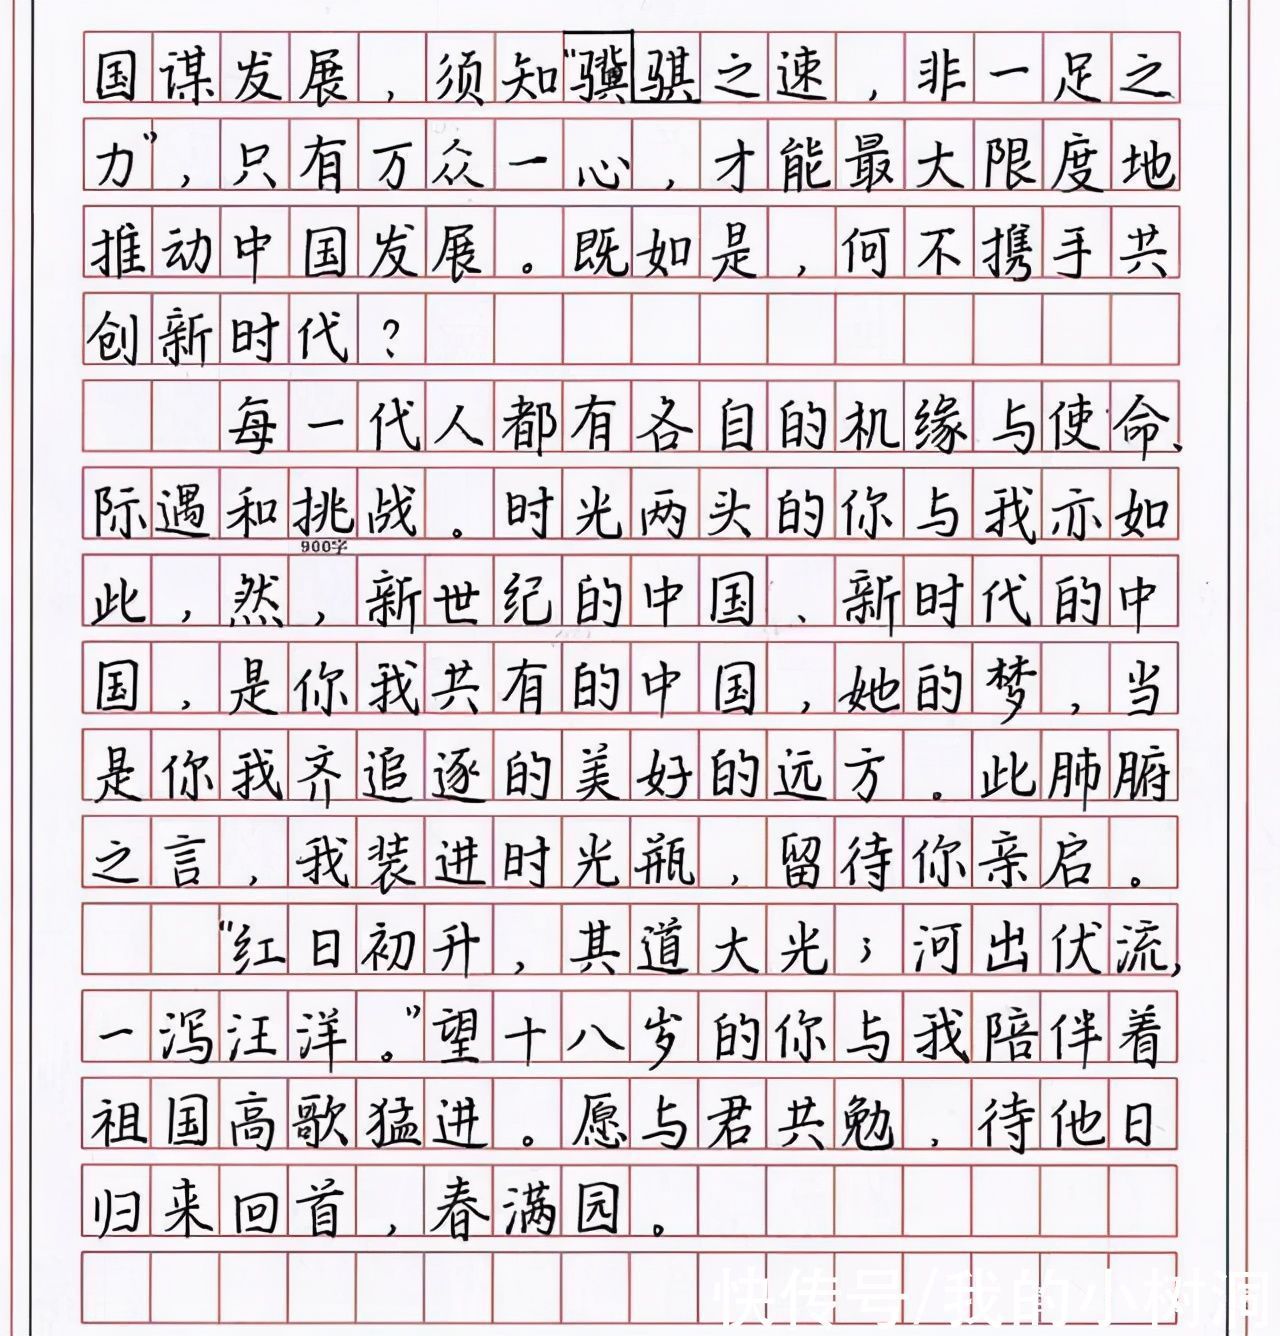 国谋发展，须知“骥骐之速，非一足之
力”，只有万众一心，才能最大限度地
推动中国发展。既如是，何不携手共
创新时代？
每一代人都有各自的机缘与使命、
际遇和挑战。时光两头的你与我亦如
900字
此，然，新世纪的中国、新时代的中
国，是你我共有的中国，她的梦，当
是你我齐追逐的美好的远方。此肺腑
之言，我装进时光瓶，留待你亲启。
“红日初升，其道大光；河出伏流，
一泻汪洋。”望十八岁的你与我陪伴着
祖国高歌猛进。愿与君共勉，待他日
归来回首，春满园。
快传号/我的小树洞